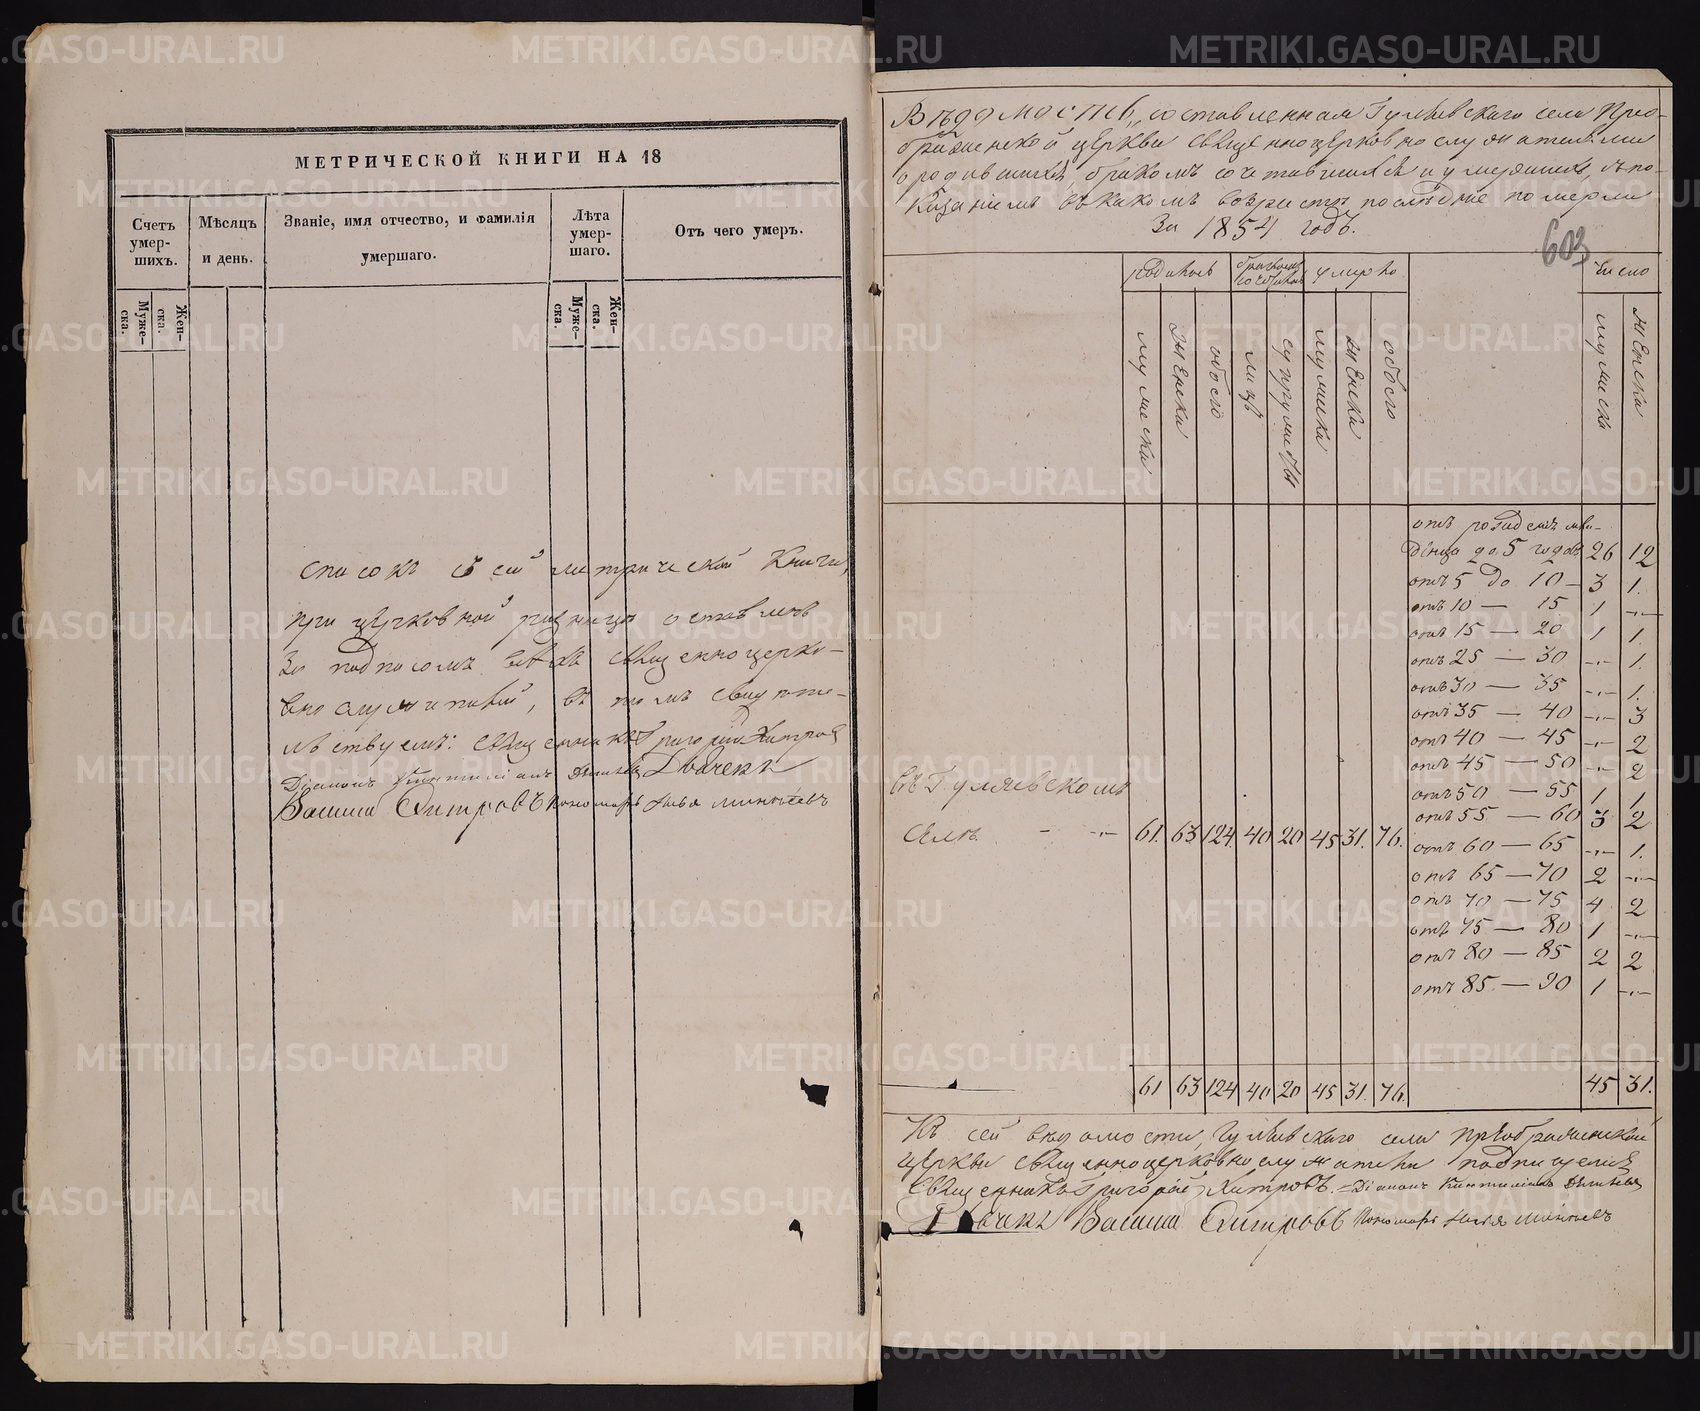 МЕТРИЧЕСКОЙ КНИГИ НА 18
Счетъ умер- шихъ.
Мѣсяцъ и день.
Званіе, имя отчество, и фамилія умершаго.
Лѣта умер- шаго.
Отъ чего умеръ.
Муже- ска.
Жен- ска.
Муже- ска.
Жен- ска.
списокъ съ сей метрической книги,
при церковной ризницѣ оставленъ
за подписомъ всѣхъ священноцерко-
вно служителей, въ томъ свидѣте-
льствуемъ: священникъ Григорій Хитровъ
Діаконъ Дьячекъ
Василій Хитровъ пономарь
Вѣдомость, составленная Гуляевскаго села Прео-
браженской церкви священноцерковнослужителями
о родившихся, бракомъ сочетавшихся и умершихъ, съ по-
казаніемъ въ какомъ возрастѣ послѣдніе померли
За 1854 годъ.
603
родилось
бракомъ
умерло
число
мужеска
женска
обоего
лицъ
супружествъ
мужеска
женска
обоего
мужеска
женска
отъ рожденія мла-
денца до 5 годовъ 26 12
отъ 5 до 10 — 3 1.
отъ 10 — 15 1 -"-
отъ 15 — 20 1 1.
отъ 25 — 30 -"- 1.
отъ 30 — 35 -"- 1.
отъ 35 — 40 -"- 3
отъ 40 — 45 -"- 2
отъ 45 — 50 -"- 2
отъ 50 — 55 1 1
отъ 55 — 60 3 2
отъ 60 — 65 -"- 1.
отъ 65 — 70 2 -"-
отъ 70 — 75 4 2
отъ 75 — 80 1 -"-
отъ 80 — 85 2 2
отъ 85 — 90 1 -"-
въ Гуляевскомъ
селѣ - -"- 61. 63 124 40 20 45 31. 76.
61 63 124 40 20 45 31. 76. 45 31.
Къ сей вѣдомости, Гуляевскаго села Преображенской
церкви священноцерковнослужители подписуемся
Священникъ Григорій Хитровъ. = Діаконъ
Дьячекъ Василій Хитровъ Пономарь
METRIKI.GASO-URAL.RU